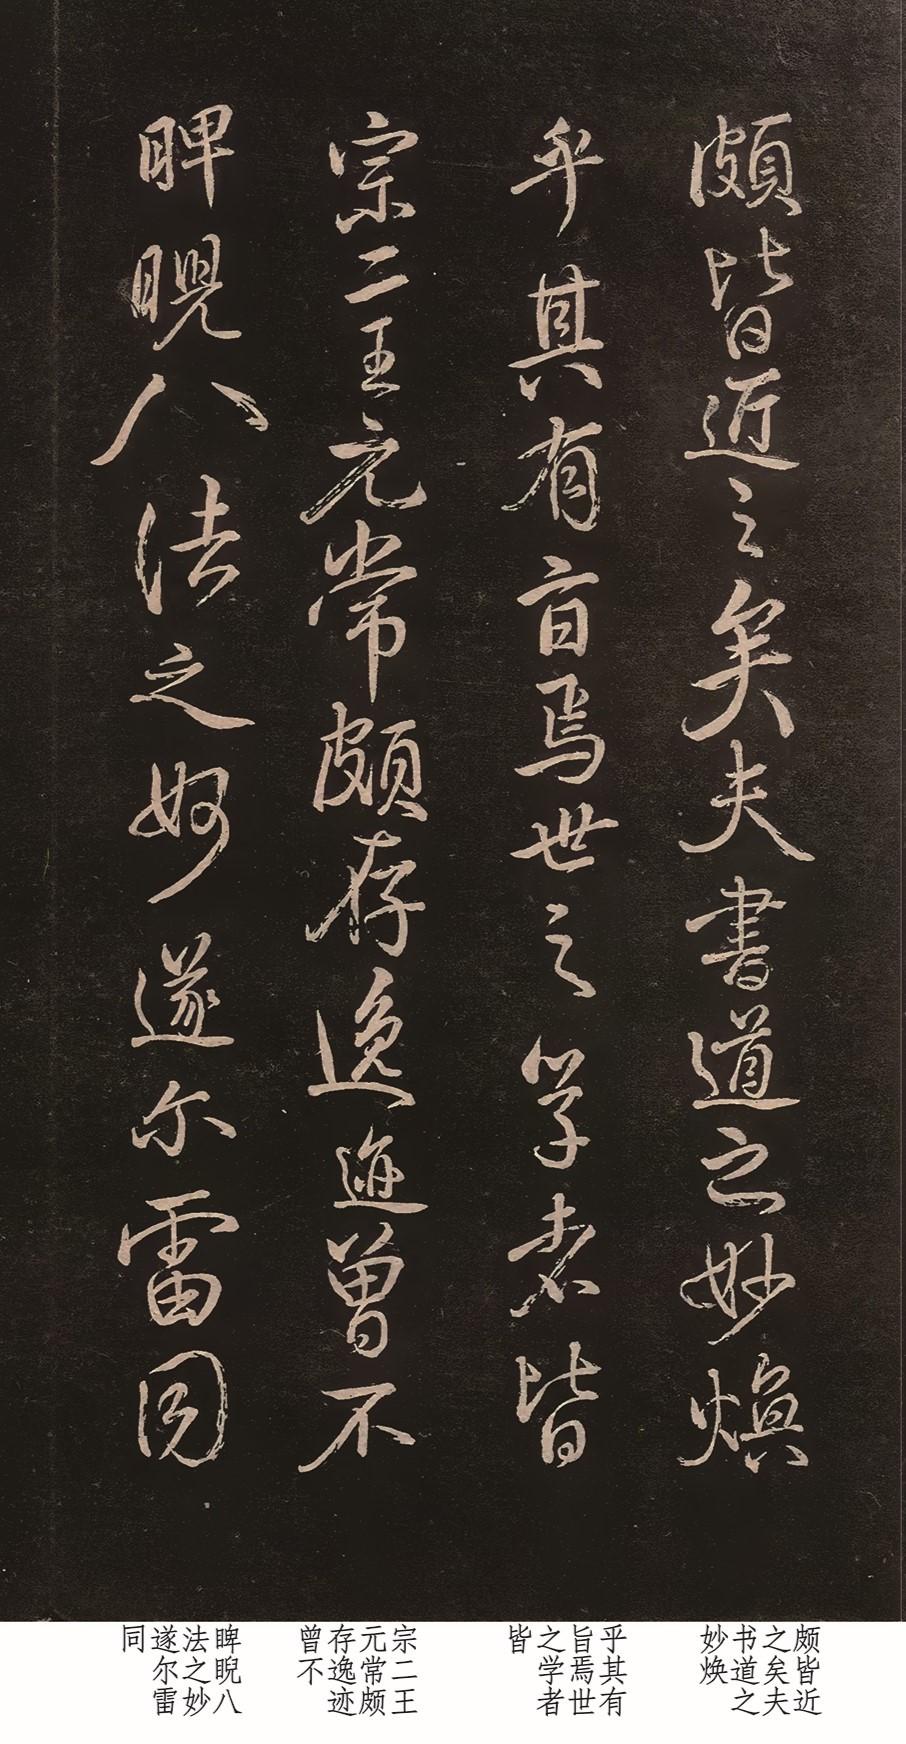 頗皆近之矣夫書道之妙煥
乎其有旨焉世之學者皆
宗二王元常頗存逸迹曾不
睥睨八法之妙遂尔雷同
颇皆近
之矣夫
书道之
妙焕
乎其有
旨焉世
之学者
皆
宗二王
元常颇
存逸迹
曾不
睥睨八
法之妙
遂尔雷
同